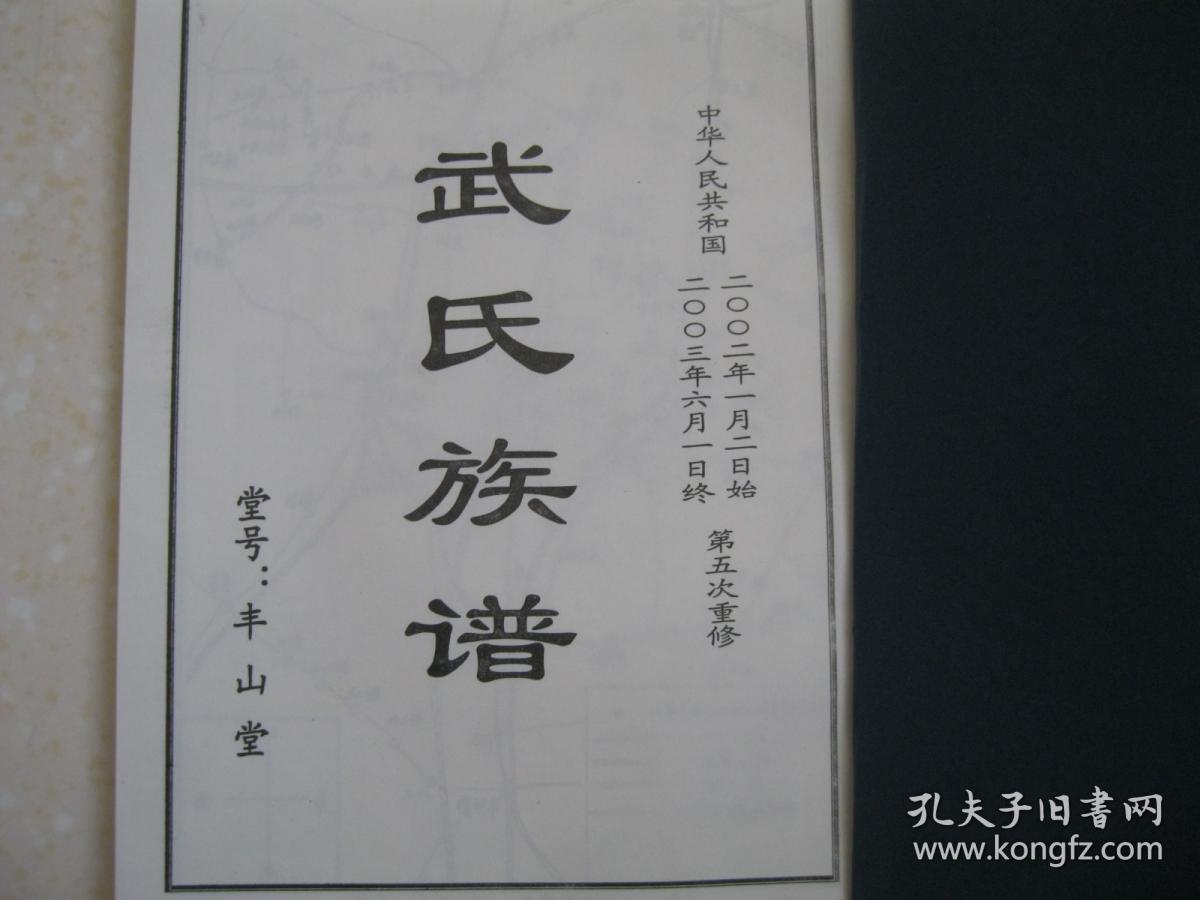 中华人民共和国
二〇〇二年一月二日始
二〇〇三年六月一日终
第五次重修
武氏族谱
堂号：丰山堂
孔夫子旧書网
www.kongfz.com